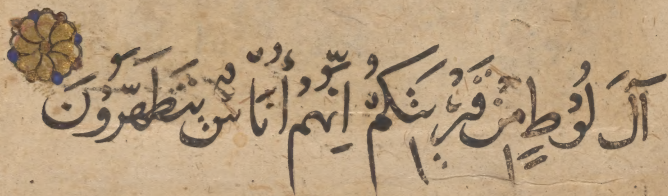 آلَ لُوطٍ مِنْ قَرْيَتِكُمْ اِنَّهُمْ أُنَاسٌ يَتَطَهَّرُونَ